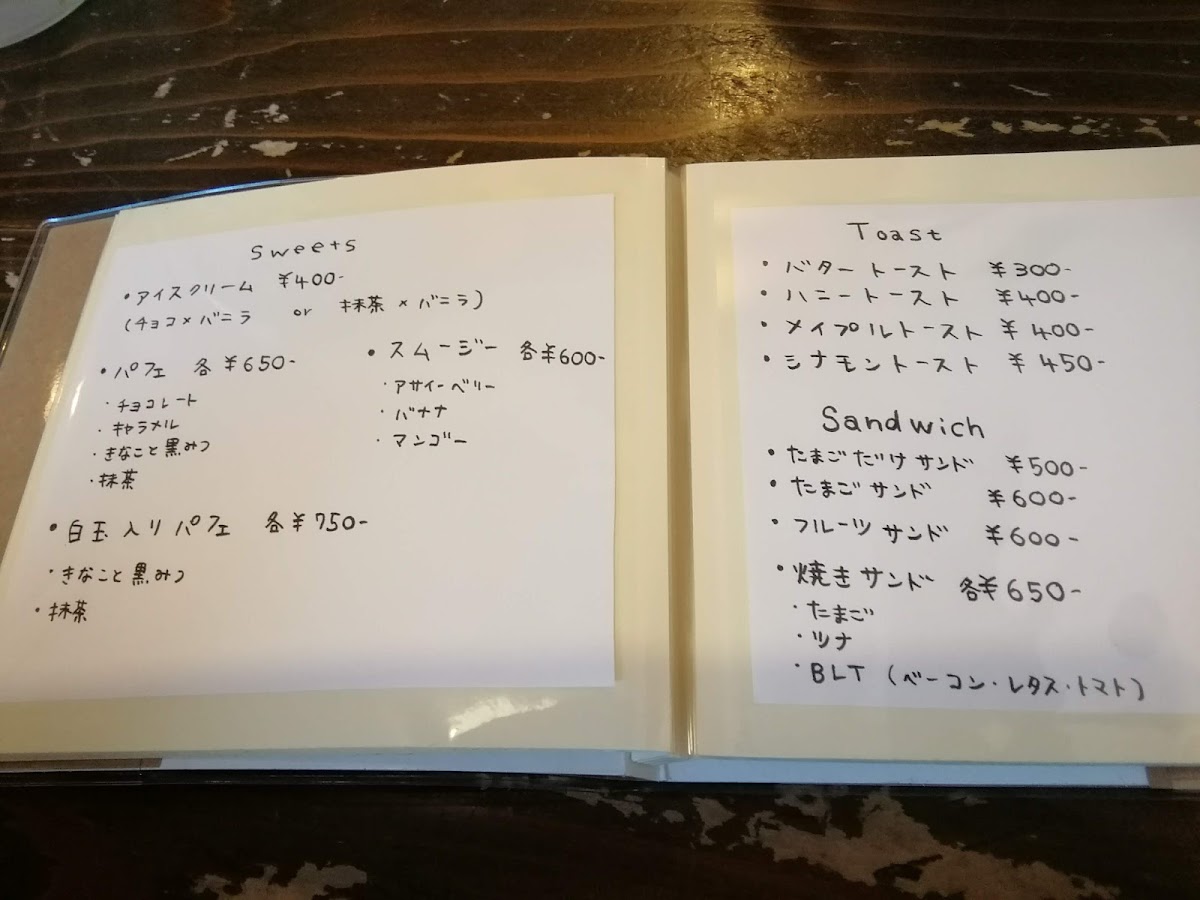 Sweets
・アイスクリーム ¥400-
(チョコ×バニラ or 抹茶×バニラ)
・パフェ 各¥650-
・チョコレート
・キャラメル
・きなこと黒みつ
・抹茶
・スムージー 各¥600-
・アサイーベリー
・バナナ
・マンゴー
・白玉入りパフェ 各¥750-
・きなこと黒みつ
・抹茶
Toast
・バタートースト ¥300-
・ハニートースト ¥400-
・メイプルトースト ¥400-
・シナモントースト ¥450-
Sandwich
・たまごだけサンド ¥500-
・たまごサンド ¥600-
・フルーツサンド ¥600-
・焼きサンド 各¥650-
・たまご
・ツナ
・BLT (ベーコン・レタス・トマト)